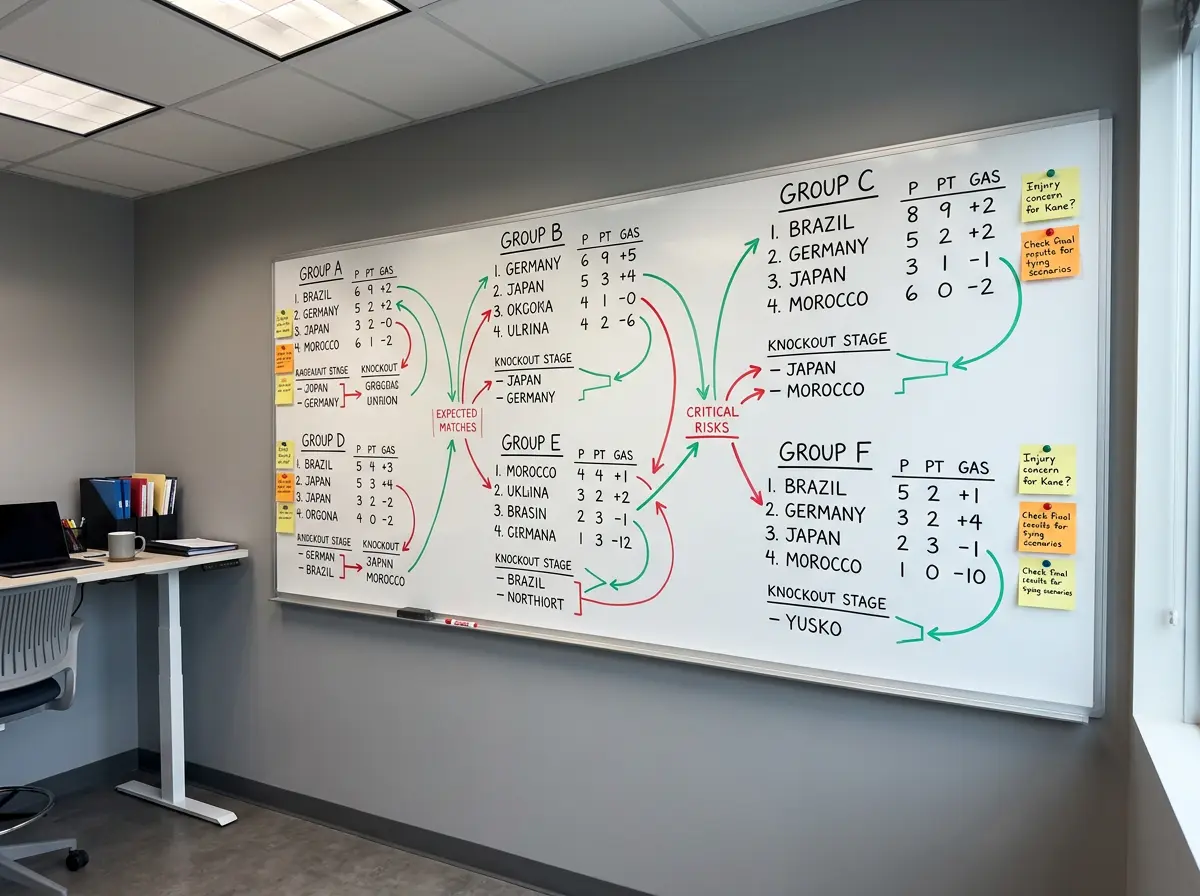 GROUP A
P PT GAS
1. BRAZIL 6 9 +2
2. GERMANY 5 2 +2
3. JAPAN 3 2 -0
4. MOROCCO 6 1 -2
STAGE KNOCKOUT
- JOPAN
- GERMANY
GROUP B
P PT GAS
1. GERMANY 6 9 +5
2. JAPAN 5 3 +4
3. OKGOKA 4 1 -0
4. ULRINA 4 2 -6
KNOCKOUT STAGE
- JAPAN
- GERMANY
EXPECTED
MATCHES
GROUP C
P PT GAS
1. BRAZIL 8 9 +2
2. GERMANY 5 2 +2
3. JAPAN 3 1 -1
4. MOROCCO 6 0 -2
KNOCKOUT STAGE
- JAPAN
- MOROCCO
CRITICAL
RISKS
Injury
concern
for Kane?
Check final
for
tying
scenarios
GROUP D
P PT GAS
1. BRAZIL 5 4 +3
2. JAPAN 5 3 +4
3. JAPAN 3 2 -2
4. ORGONA 4 0 -2
STAGE KNOCKOUT
- GERMAN JAPAN
- BRAZIL MOROCCO
GROUP E
P PT GAS
1. MOROCCO 4 4 +1
2. UKLINA 3 2 +2
3. BRASIN 2 3 -1
4. GIRMANA 1 3 -12
KNOCKOUT STAGE
- BRAZIL
- NORTHIORT
GROUP F
P PT GAS
1. BRAZIL 5 2 +1
2. GERMANY 3 2 +4
3. JAPAN 2 3 -1
4. MOROCCO 1 0 -10
KNOCKOUT STAGE
- YUSKO
Injury
concern
for Kane?
Check Final
results for
scenarios
Check final
results for
scenarios